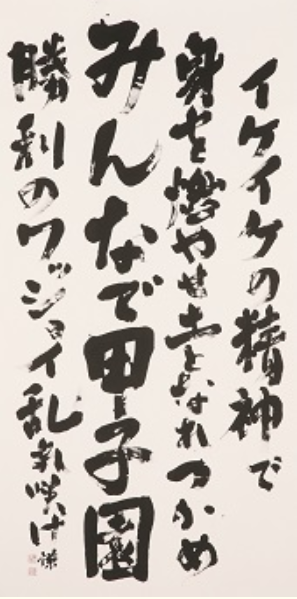 イケイケの精神で
身を燃やせ土となれつかめ
みんなで甲子園
勝利のワッショイ乱気咲